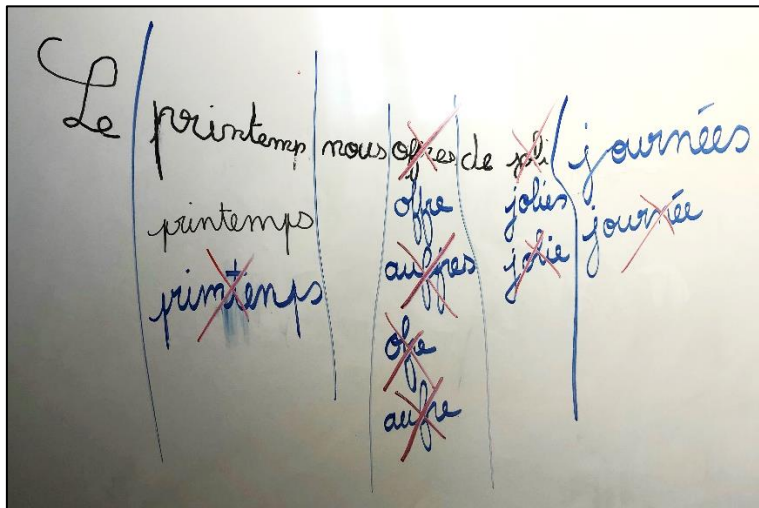 Le printemp nous offres de joli journées
printemps offre jolies journée
primtenps auffres jolie
ofre
aufre